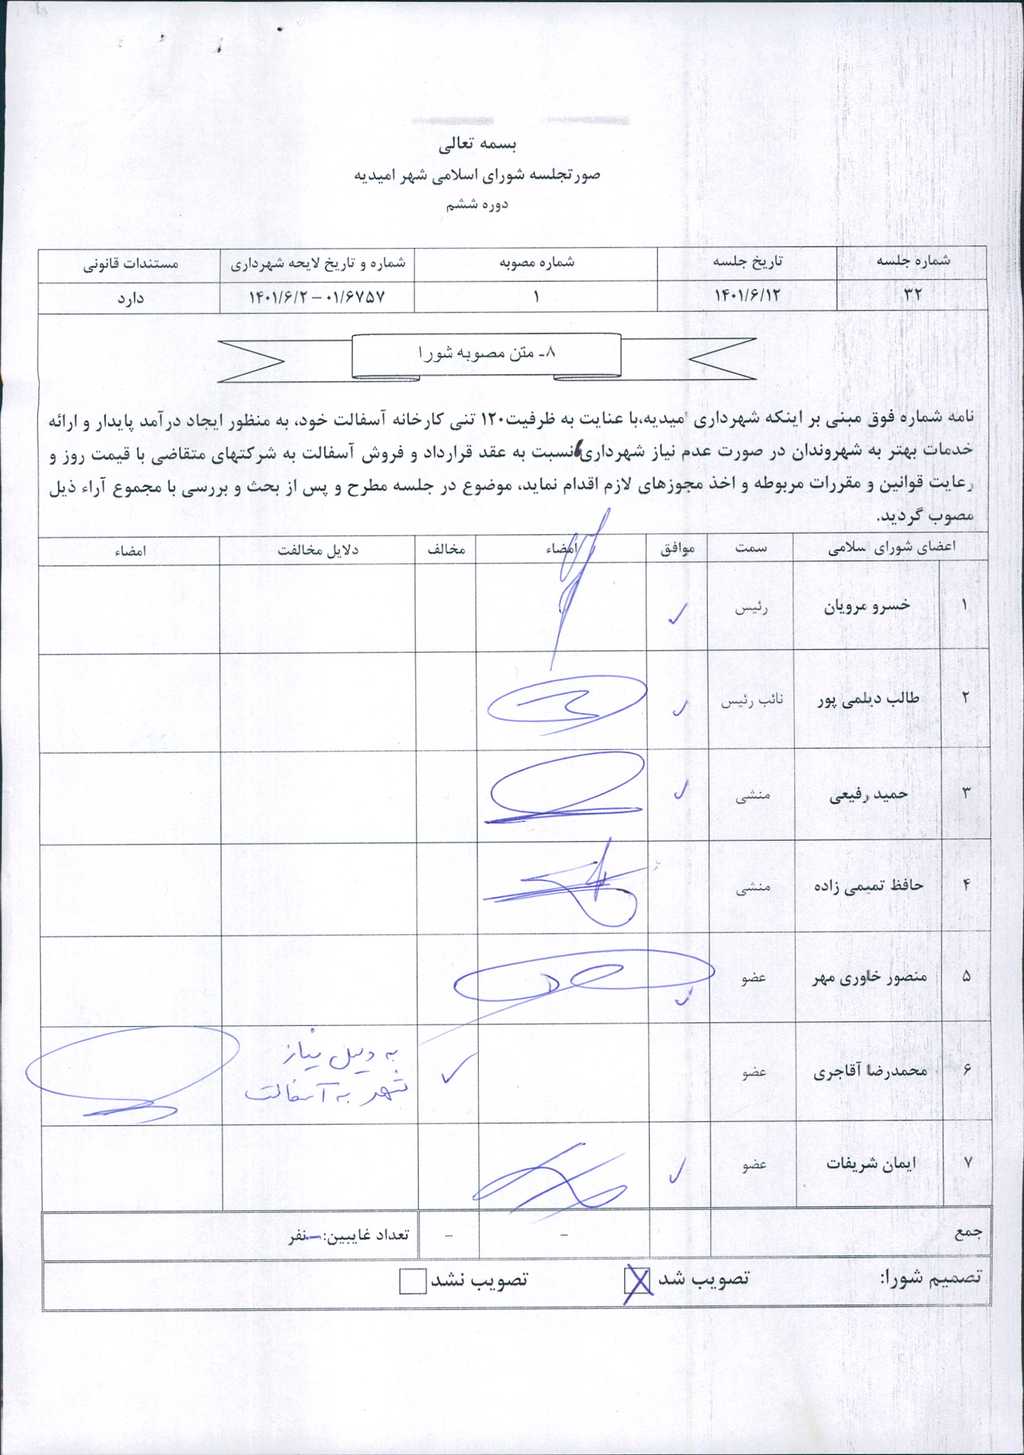 بسمه تعالی
صورتجلسه شورای اسلامی شهر امیدیه
دوره ششم
شماره جلسه تاریخ جلسه شماره مصوبه شماره و تاریخ لایحه شهرداری مستندات قانونی
۳۲ ۱۴۰۱/۶/۱۲ ۱ ۰۱/۶۷۵۷ – ۱۴۰۱/۶/۲ دارد
۸ـ متن مصوبه شورا
نامه شماره فوق مبنی بر اینکه شهرداری امیدیه،با عنایت به ظرفیت۱۲۰ تنی کارخانه آسفالت خود، به منظور ایجاد درآمد پایدار و ارائه
خدمات بهتر به شهروندان در صورت عدم نیاز شهرداری نسبت به عقد قرارداد و فروش آسفالت به شرکتهای متقاضی با قیمت روز و
رعایت قوانین و مقررات مربوطه و اخذ مجوزهای لازم اقدام نماید، موضوع در جلسه مطرح و پس از بحث و بررسی با مجموع آراء ذیل
مصوب گردید.
اعضای شورای اسلامی سمت موافق امضاء مخالف دلایل مخالفت امضاء
۱ خسرو مرویان رئیس ✓
۲ طالب دیلمی پور نائب رئیس ✓
۳ حمید رفیعی منشی ✓
۴ حافظ تمیمی زاده منشی
۵ منصور خاوری مهر عضو ✓
۶ محمدرضا آقاجری عضو ✓ به دلیل نیاز
شهر به آسفالت
۷ ایمان شریفات عضو ✓
جمع - - تعداد غایبین:—نفر
تصمیم شورا: تصویب شد ☒ تصویب نشد ☐